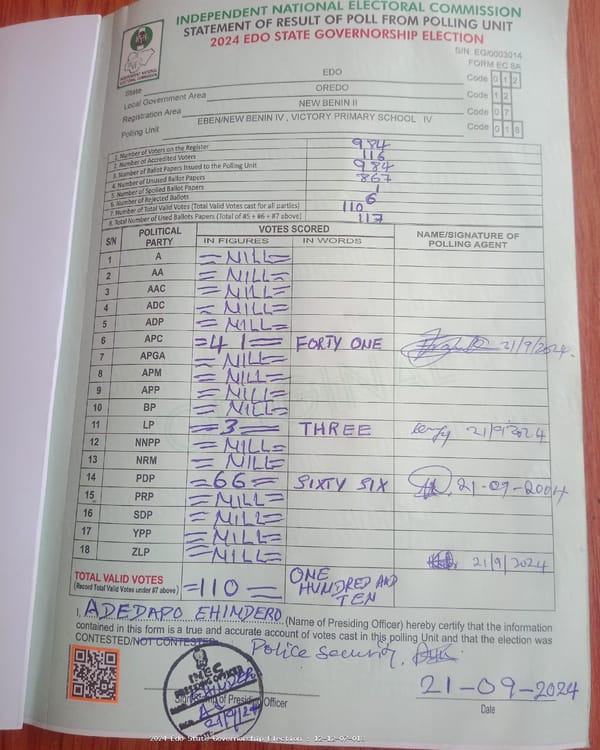 INDEPENDENT NATIONAL ELECTORAL COMMISSION
STATEMENT OF RESULT OF POLL FROM POLLING UNIT
2024 EDO STATE GOVERNORSHIP ELECTION
S/N: EG/0003014
FORM EC 8A
INDEPENDENT NATIONAL ELECTORAL COMMISSION
State EDO Code 0 1 2
Local Government Area OREDO Code 1 2
Registration Area NEW BENIN II Code 0 7
Polling Unit EBEN/NEW BENIN IV , VICTORY PRIMARY SCHOOL IV Code 0 1 8
1. Number of Voters on the Register 984
2. Number of Accredited Voters 116
3. Number of Ballot Papers Issued to the Polling Unit 984
4. Number of Unused Ballot Papers 867
5. Number of Spoiled Ballot Papers 1
6. Number of Rejected Ballots 6
7. Number of Total Valid Votes (Total Valid Votes cast for all parties) 110
8. Total Number of Used Ballots Papers (Total of #5 + #6 + #7 above) 117
S/N POLITICAL PARTY VOTES SCORED NAME/SIGNATURE OF POLLING AGENT
IN FIGURES IN WORDS
1 A =NILL=
2 AA =NILL=
3 AAC =NILL=
4 ADC =NILL=
5 ADP =NILL=
6 APC =41= FORTY ONE 21/9/2024.
7 APGA =NILL=
8 APM =NILL=
9 APP =NILL=
10 BP =NILL=
11 LP =3= THREE 21/9/2024
12 NNPP =NILL=
13 NRM =NILL=
14 PDP =66= SIXTY SIX 21-09-2004
15 PRP =NILL=
16 SDP =NILL=
17 YPP =NILL=
18 ZLP =NILL= 21/9/2024
TOTAL VALID VOTES (Record Total Valid Votes under #7 above) =110= ONE HUNDRED AND TEN
I, ADEDAPO EHINDERO (Name of Presiding Officer) hereby certify that the information
contained in this form is a true and accurate account of votes cast in this polling Unit and that the election was
CONTESTED/NOT CONTESTED
Police Security.
INEC
PRESIDING OFFICER
21/9/24
Signature of Presiding Officer
21-09-2024
Date
2024 Edo State Governorship Election - 12-12-07-018